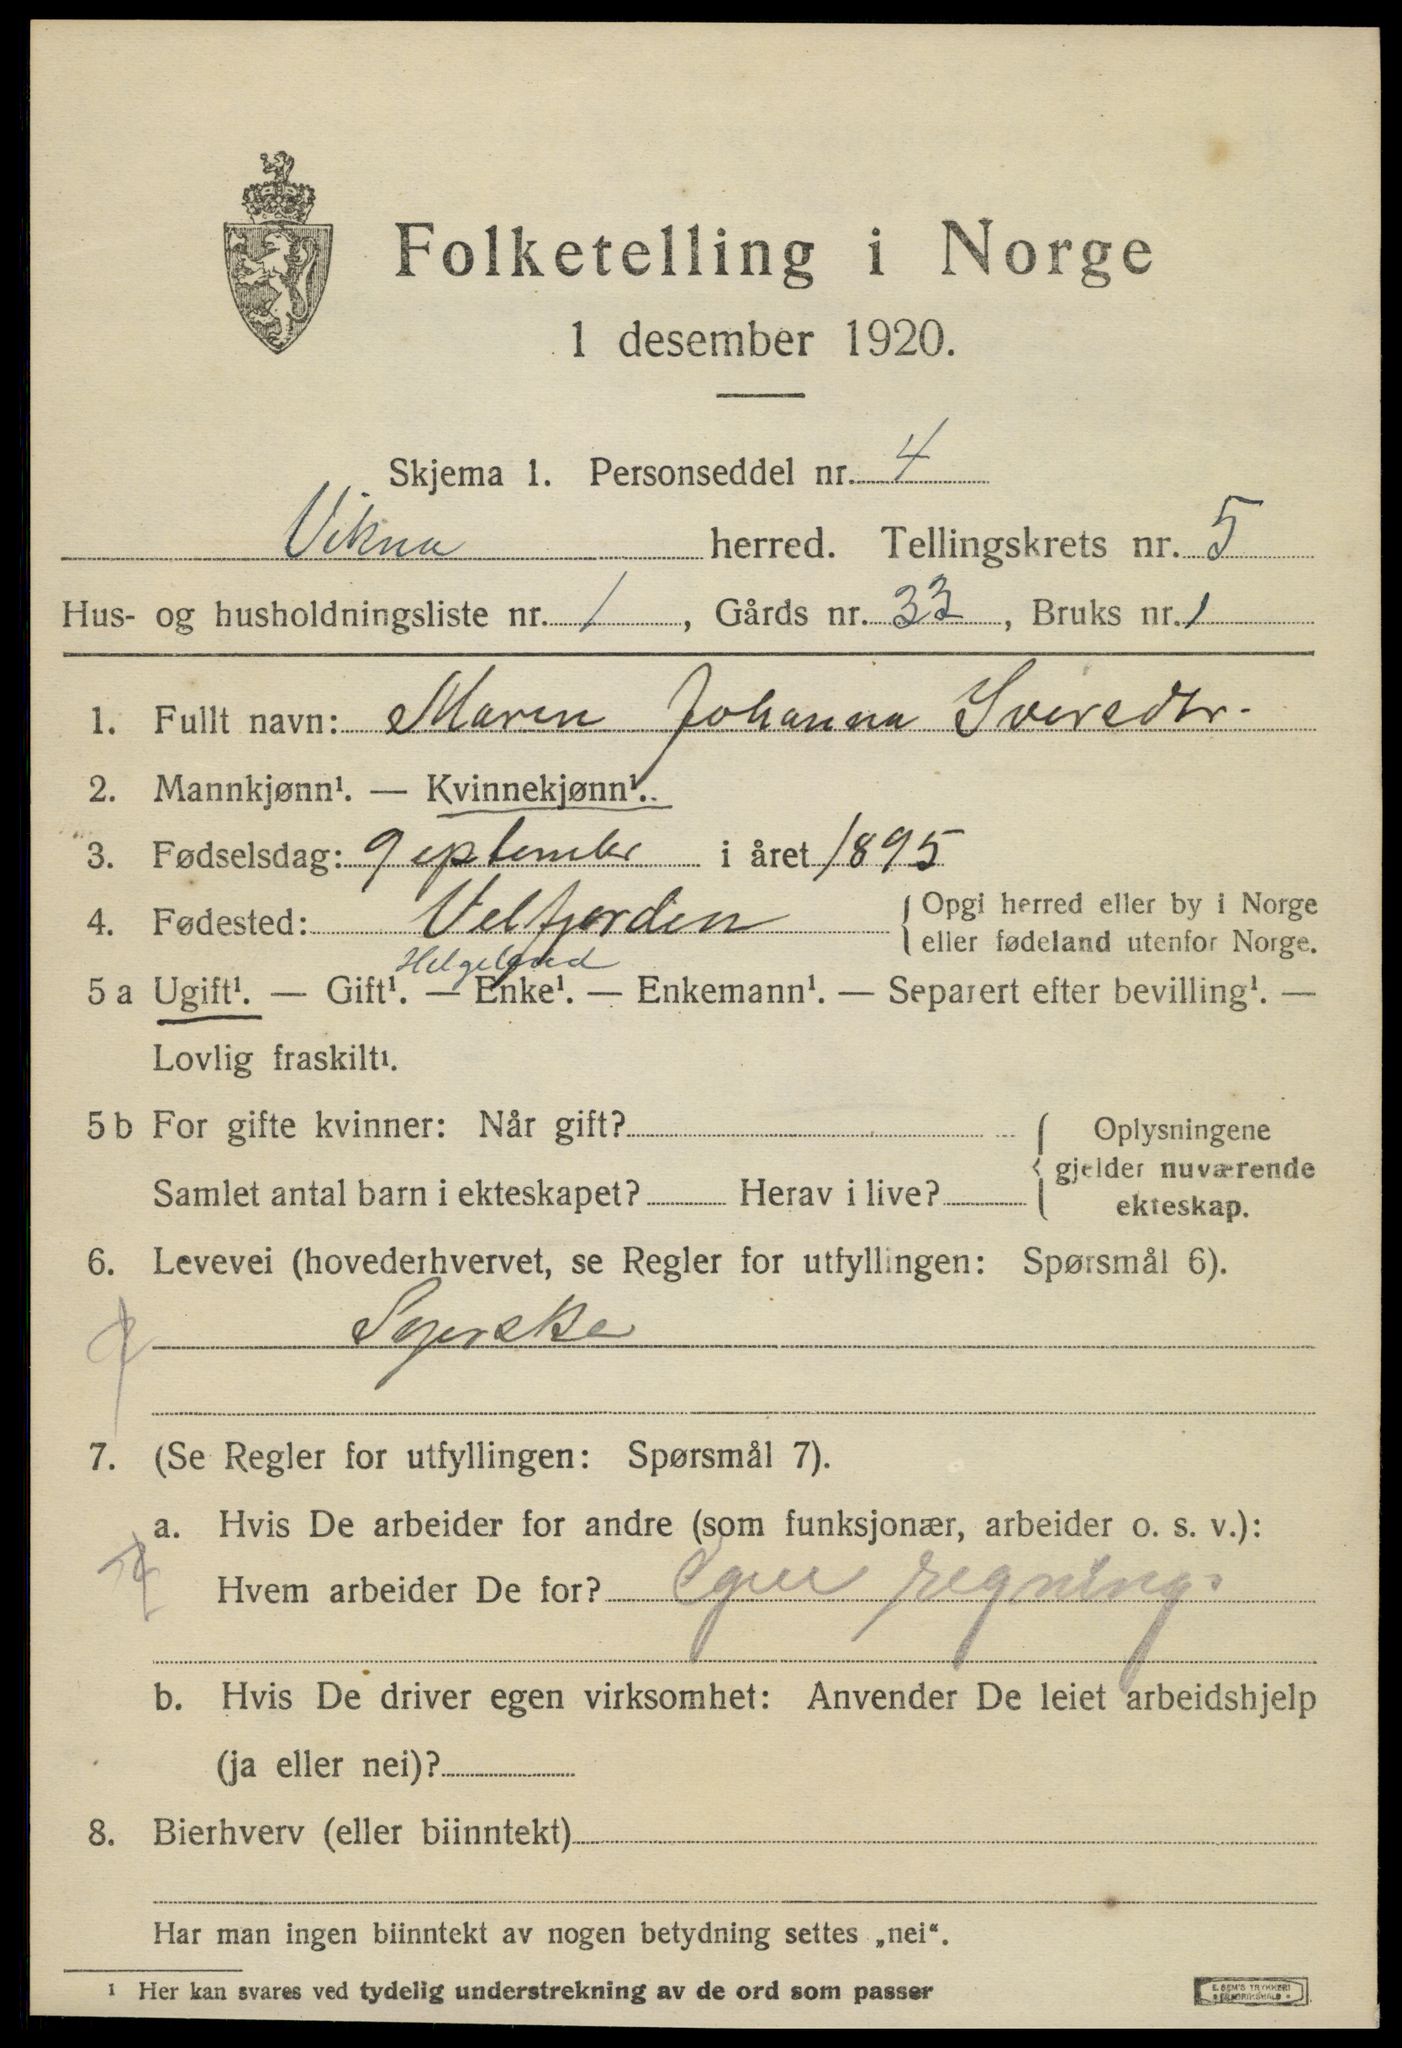 Folketelling i Norge
1 desember 1920.
Skjema 1. Personseddel nr. 4
Vikna herred. Tellingskrets nr. 5
Hus- og husholdningsliste nr. 1, Gårds nr. 33, Bruks nr. 1
1. Fullt navn: Maren Johanna Iversdtr.
2. Mannkjønn¹. — Kvinnekjønn¹.
3. Fødselsdag: 9 september i året 1895
4. Fødested: Velfjorden { Opgi herred eller by i Norge
eller fødeland utenfor Norge.
Helgeland
5 a Ugift¹. — Gift¹. — Enke¹. — Enkemann¹. — Separert efter bevilling¹. —
Lovlig fraskilt¹.
5 b For gifte kvinner: Når gift? { Oplysningene
gjelder nuværende
Samlet antal barn i ekteskapet? Herav i live? ekteskap.
6. Levevei (hovederhvervet, se Regler for utfyllingen: Spørsmål 6).
Syerske
7. (Se Regler for utfyllingen: Spørsmål 7).
a. Hvis De arbeider for andre (som funksjonær, arbeider o. s. v.):
Hvem arbeider De for? Egen regning.
b. Hvis De driver egen virksomhet: Anvender De leiet arbeidshjelp
(ja eller nei)?
8. Bierhverv (eller biinntekt)
Har man ingen biinntekt av nogen betydning settes „nei“.
¹ Her kan svares ved tydelig understrekning av de ord som passer
E. SEM'S TRYKKERI
FREDRIKSHALD